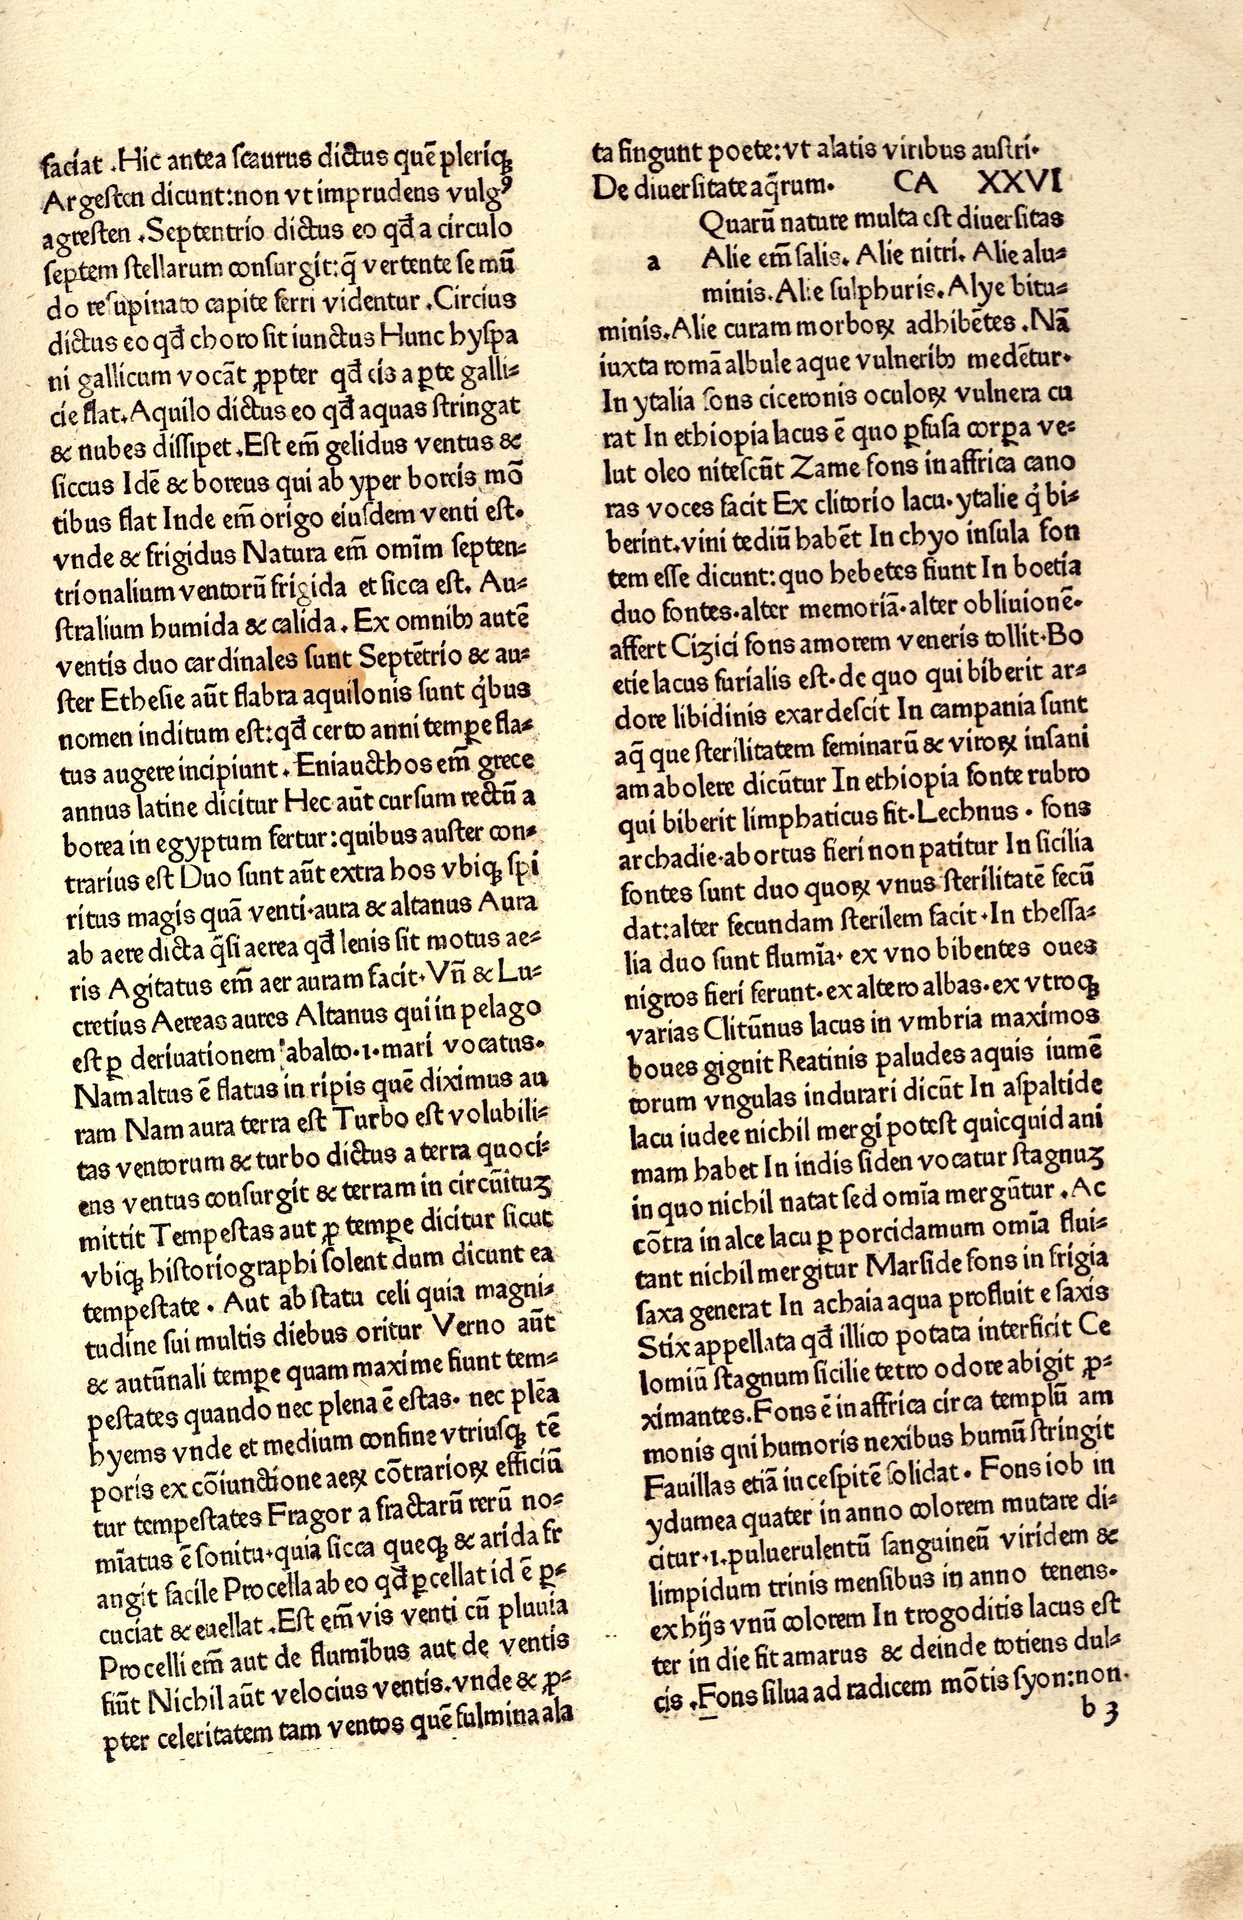 faciat .Hic antea scaurus dictus quē pleriqꝫ
Argesten dicunt:non vt imprudens vulgꝰ
agresten .Septentrio dictus eo qđ a circulo
septem stellarum consurgit:q̄ vertente se mū
do resupinato capite ferri videntur .Circius
dictus eo qđ choro sit iunctus Hunc hyspa
ni gallicum vocāt ꝓpter qđ cis a ꝑte galli-
cie flat.Aquilo dictus eo qđ aquas stringat
& nubes dissipet .Est em̄ gelidus ventus &
siccus Idē & boreus qui ab yper boreis mō
tibus flat Inde em̄ origo eiusdem venti est.
vnde & frigidus Natura em̄ omīm septen-
trionalium ventorū frigida et sicca est. Au-
stralium humida & calida. Ex omnibꝫ autē
ventis duo cardinales sunt Septētrio & au-
ster Ethesie aūt flabra aquilonis sunt q̇bus
nomen inditum est:qđ certo anni tempe̱ fla-
tus augere incipiunt .Eniaucthos em̄ grece
annus latine dicitur Hec aūt cursum rectū a
borea in egyptum fertur:quibus auster con-
trarius est Duo sunt aūt extra hos vbiqꝫ spi
ritus magis quā venti.aura & altanus Aura
ab aere dicta q̄si aerea qđ lenis sit motus ae-
ris Agitatus em̄ aer auram facit. Vn̄ & Lu-
cretius Aereas aures Altanus qui in pelago
est ꝑ deriuationem abalto.ı.mari vocatus.
Nam altus ē flatus in ripis quē diximus au
ram Nam aura terra est Turbo est volubili-
tas ventorum & turbo dictus a terra quoci-
ens ventus consurgit & terram in circūituꝫ
mittit Tempestas aut ꝓ tempe̱ dicitur sicut
vbiqꝫ historiographi solent dum dicunt ea
tempestate . Aut ab statu celi quia magni-
tudine sui multis diebus oritur Verno aūt
& autūnali tempe̱ quam maxime fiunt tem-
pestates quando nec plena ē estas. nec plēa
hyems vnde et medium confine vtriusqꝫ tē
poris ex cōiunctione aeꝝ cōtrarioꝝ efficiū
tur tempestates Fragor a fractarū rerū no-
mīatus ē sonitu.quia sicca queqꝫ & arida fr
angit facile Procella ab eo qđ ꝑcellat id ē ꝑ-
cuciat & euellat .Est em̄ vis venti cū pluuia
Procelli em̄ aut de flumībus aut de ventis
fiūt Nichil aūt velocius ventis.vnde & ꝓ-
pter celeritatem tam ventos quē fulmina ala
ta fingunt poete:vt alatis viribus austri.
De diuersitate aq̄rum. CA XXVI
Quarū nature multa est diuersitas
a Alie em̄ salis. Alie nitri. Alie alu-
minis.Alie sulphuris.Alye bitu-
minis.Alie curam morboꝝ adhibētes .Nā
iuxta romā albule aque vulneribꝫ medētur.
In ytalia fons ciceronis oculoꝝ vulnera cu
rat In ethiopia lacus ē quo ꝑfusa corꝑa ve-
lut oleo nitescūt Zame fons in affrica cano
ras voces facit Ex clitorio lacu.ytalie q̇ bi-
berint.vini tediū habēt In chyo insula fon
tem esse dicunt:quo hebetes fiunt In boetia
duo fontes.alter memoriā.alter obliuionē.
affert Cizici fons amorem veneris tollit.Bo
etie lacus furialis est.de quo qui biberit ar-
dore libidinis exardescit In campania sunt
aq̄ que sterilitatem feminarū & viroꝝ insani
am abolere dicūtur In ethiopia fonte rubro
qui biberit limphaticus fit.Lechnus . fons
archadie.abortus fieri non patitur In sicilia
fontes sunt duo quoꝝ vnus sterilitatē fecū
dat:alter fecundam sterilem facit.In thessa-
lia duo sunt flumīa. ex vno bibentes oues
nigros fieri ferunt.ex altero albas.ex vtroqꝫ
varias Clitūnus lacus in vmbria maximos
boues gignit Reatinis paludes aquis iumē
torum vngulas indurari dicūt In aspaltide
lacu iudee nichil mergi potest quicquid ani
mam habet In indis siden vocatur stagnuꝫ
in quo nichil natat sed omīa mergūtur .Ac
cōtra in alce lacu ꝑ porcidamum omīa flui-
tant nichil mergitur Marside fons in frigia
saxa generat In achaia aqua profluit e saxis
Stix appellata qđ illico potata interficit Ce
lomiū stagnum sicilie tetro odore abigit ꝓ-
ximantes.Fons ē in affrica circa templū am
monis qui humoris nexibus humū stringit
Fauillas etiā in cespitē solidat. Fons iob in
ydumea quater in anno colorem mutare di-
citur.ı.puluerulentū sanguineū viridem &
limpidum trinis mensibus in anno tenens.
ex hijs vnū colorem In trogoditis lacus est
ter in die fit amarus & deinde totiens dul-
cis .Fons silua ad radicem mōtis syon:non.
b 3